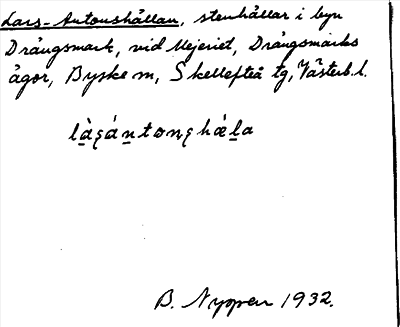 Lars-Antonshällan, stenhällar i byn
Drängsmark, vid Mejeriet, Drängsmarks
ägor, Byske sn, Skellefteå tg, Västerb. l.
B. Nyppen 1932.